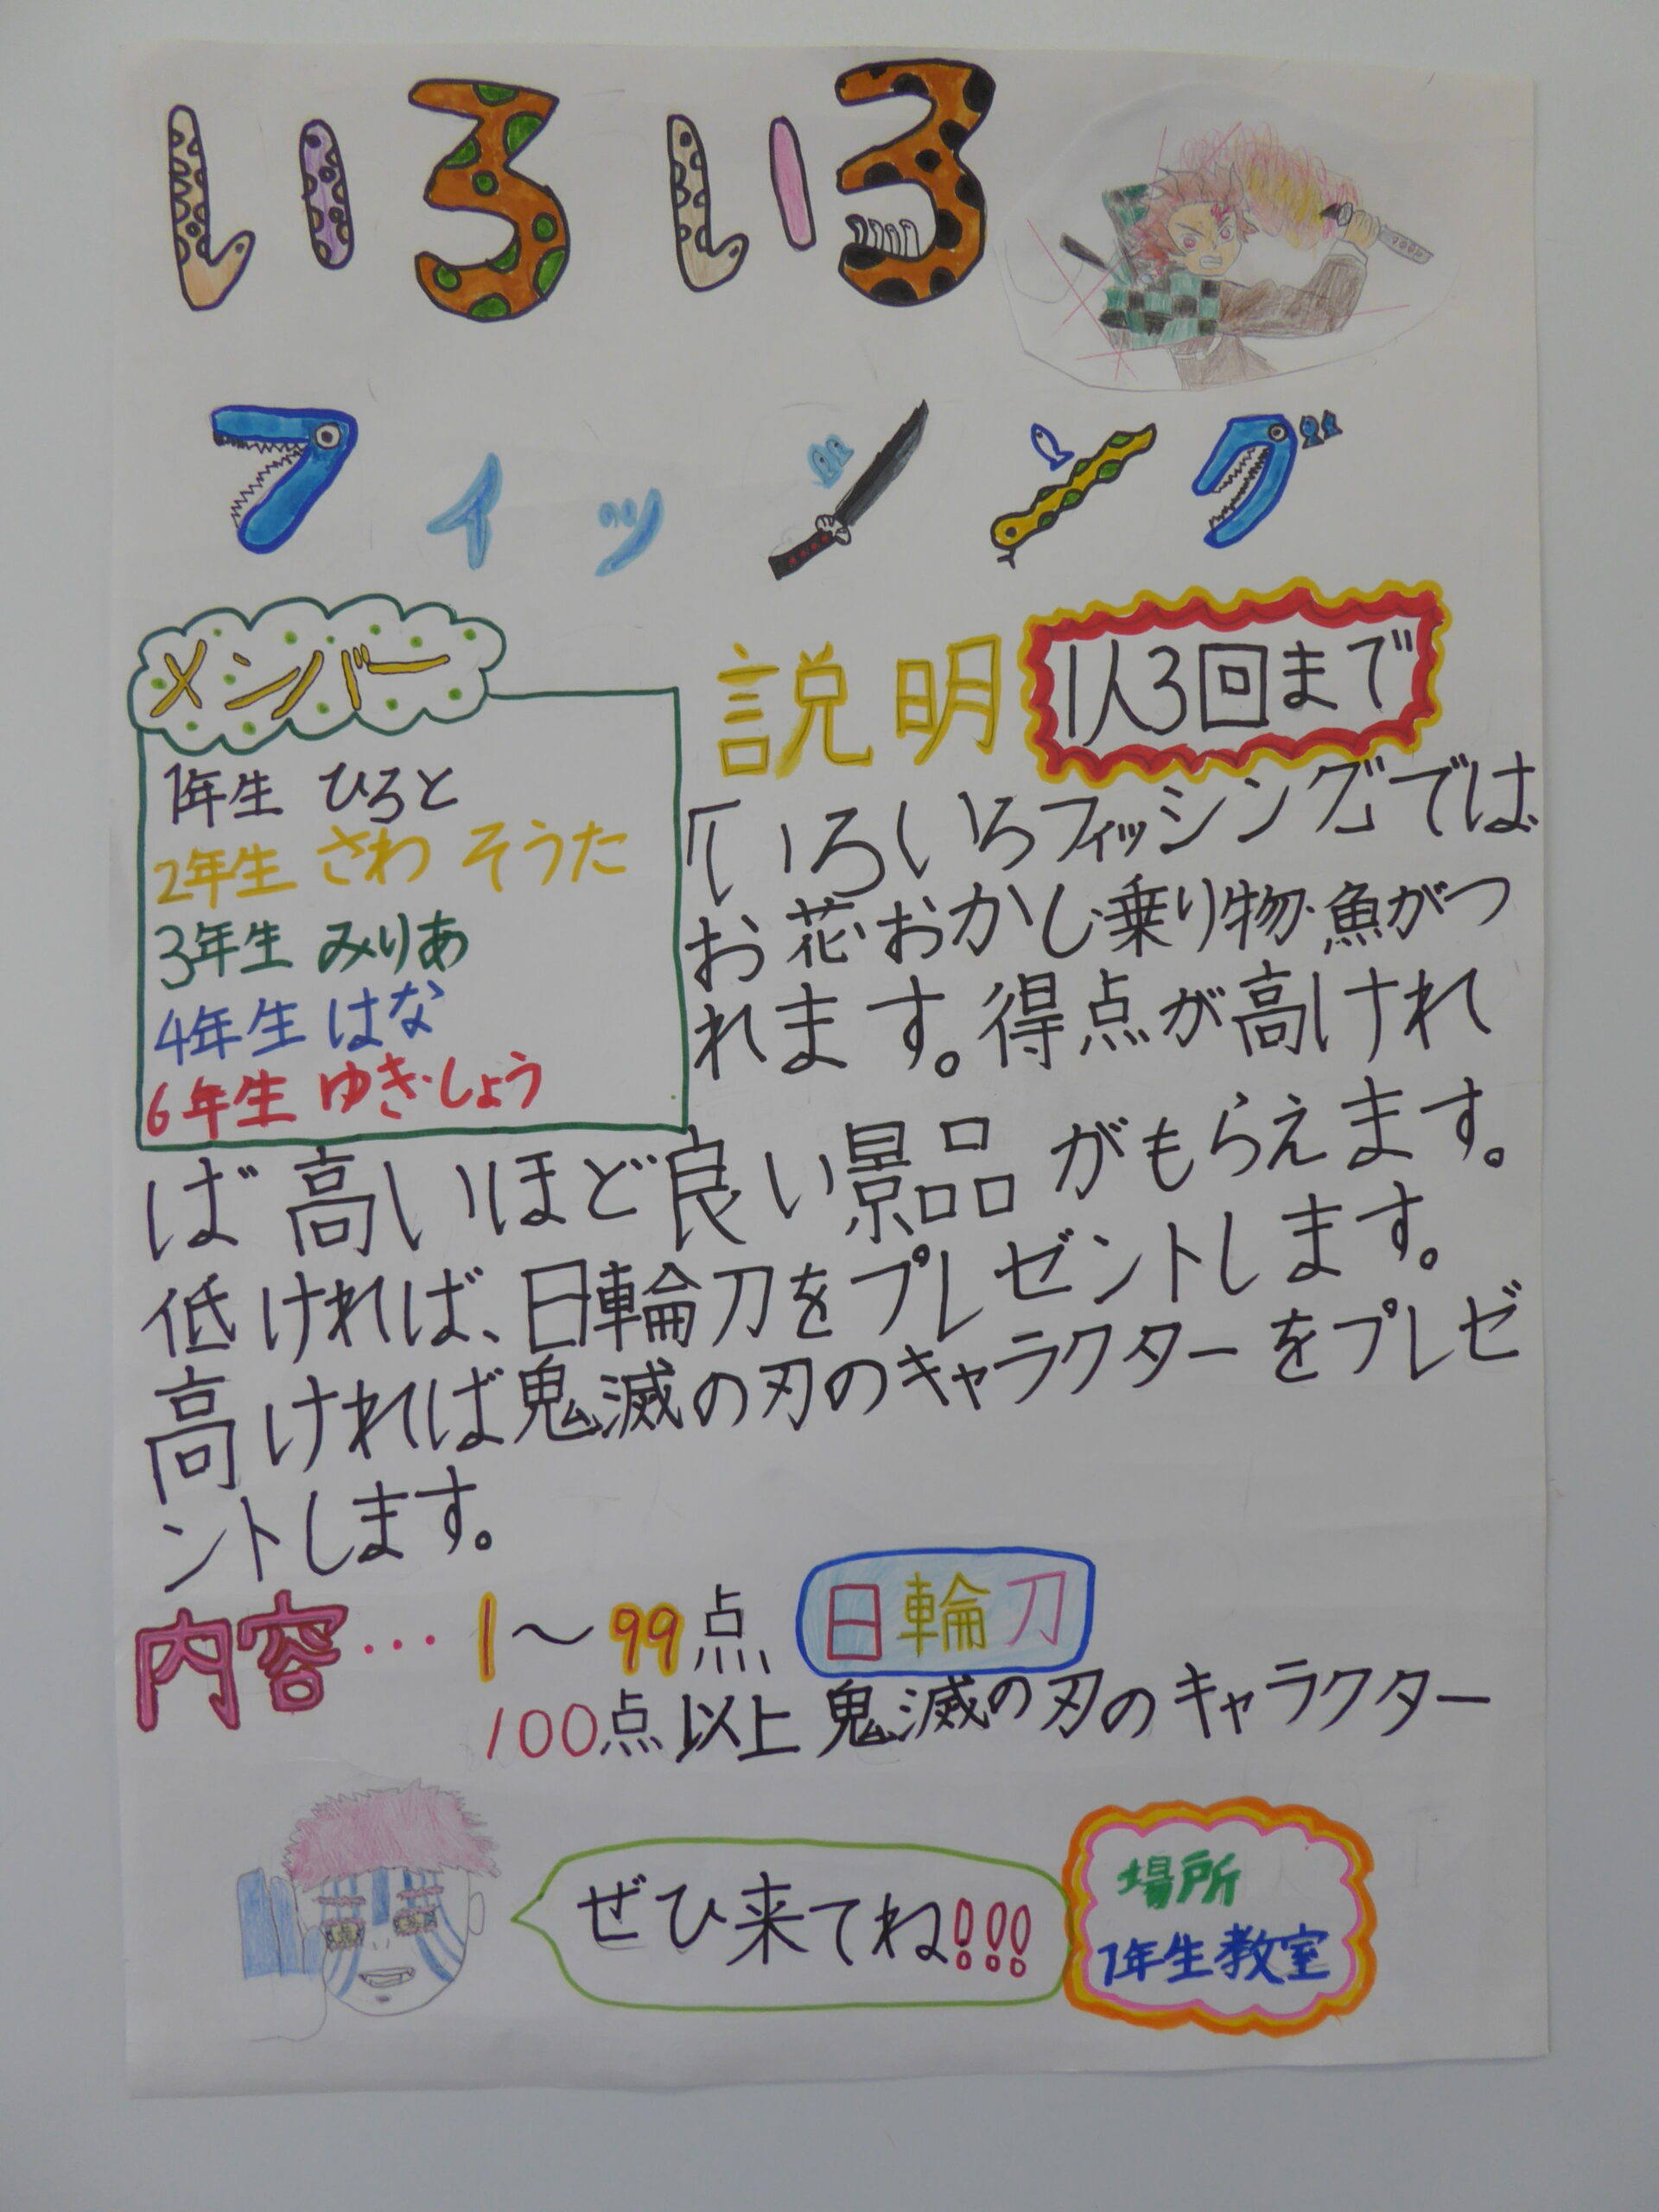 いろいろ
フィッシング
メンバー
1年生 ひろと
2年生 さわ そうた
3年生 みりあ
4年生 はな
6年生 ゆき・しょう
説明
1人3回まで
「いろいろフィッシング」では
お花・おかし・乗り物・魚がつ
れます。得点が高けれ
ば高いほど良い景品がもらえます。
低ければ、日輪刀をプレゼントします。
高ければ鬼滅の刃のキャラクターをプレゼ
ントします。
内容… 1〜99点 日輪刀
100点以上 鬼滅の刃のキャラクター
ぜひ来てね!!!
場所
1年生教室